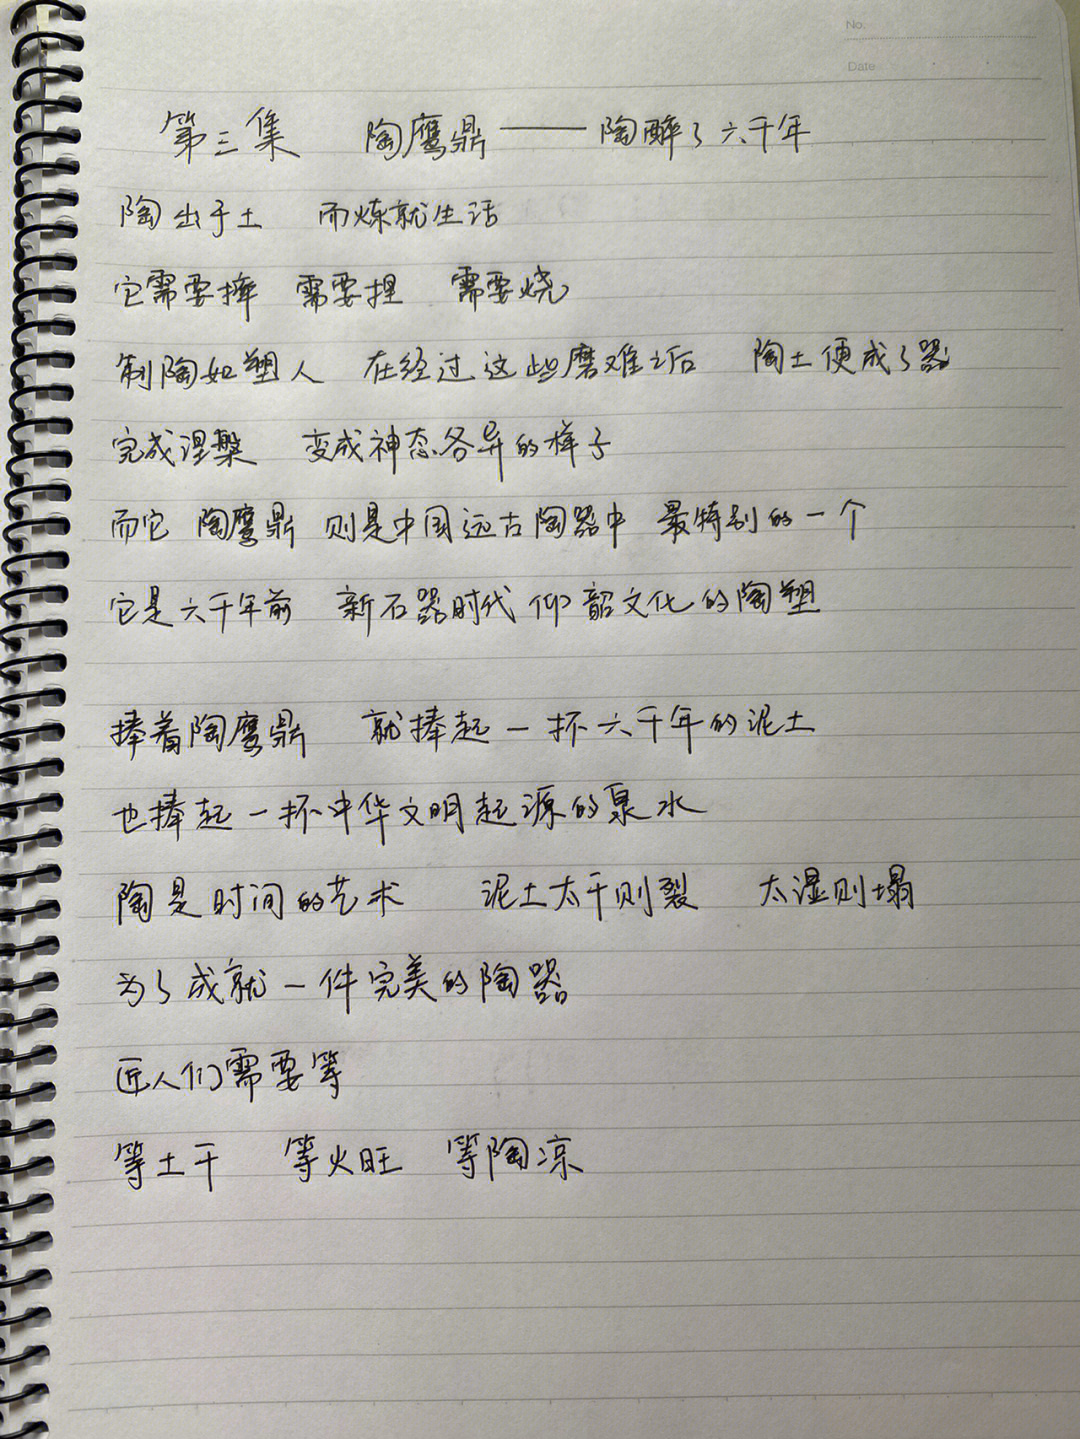 No.
Date
第三集 陶鹰鼎——陶醉了六千年
陶出于土 而炼就生活
它需要摔 需要捏 需要烧
制陶如塑人 在经过这些磨难之后 陶土便成了器
完成涅槃 变成神态各异的样子
而它 陶鹰鼎 则是中国远古陶器中 最特别的一个
它是六千年前 新石器时代 仰韶文化的陶塑
捧着陶鹰鼎 就捧起一抔六千年的泥土
也捧起一抔中华文明起源的泉水
陶是时间的艺术 泥土太干则裂 太湿则塌
为了成就一件完美的陶器
匠人们需要等
等土干 等火旺 等陶凉